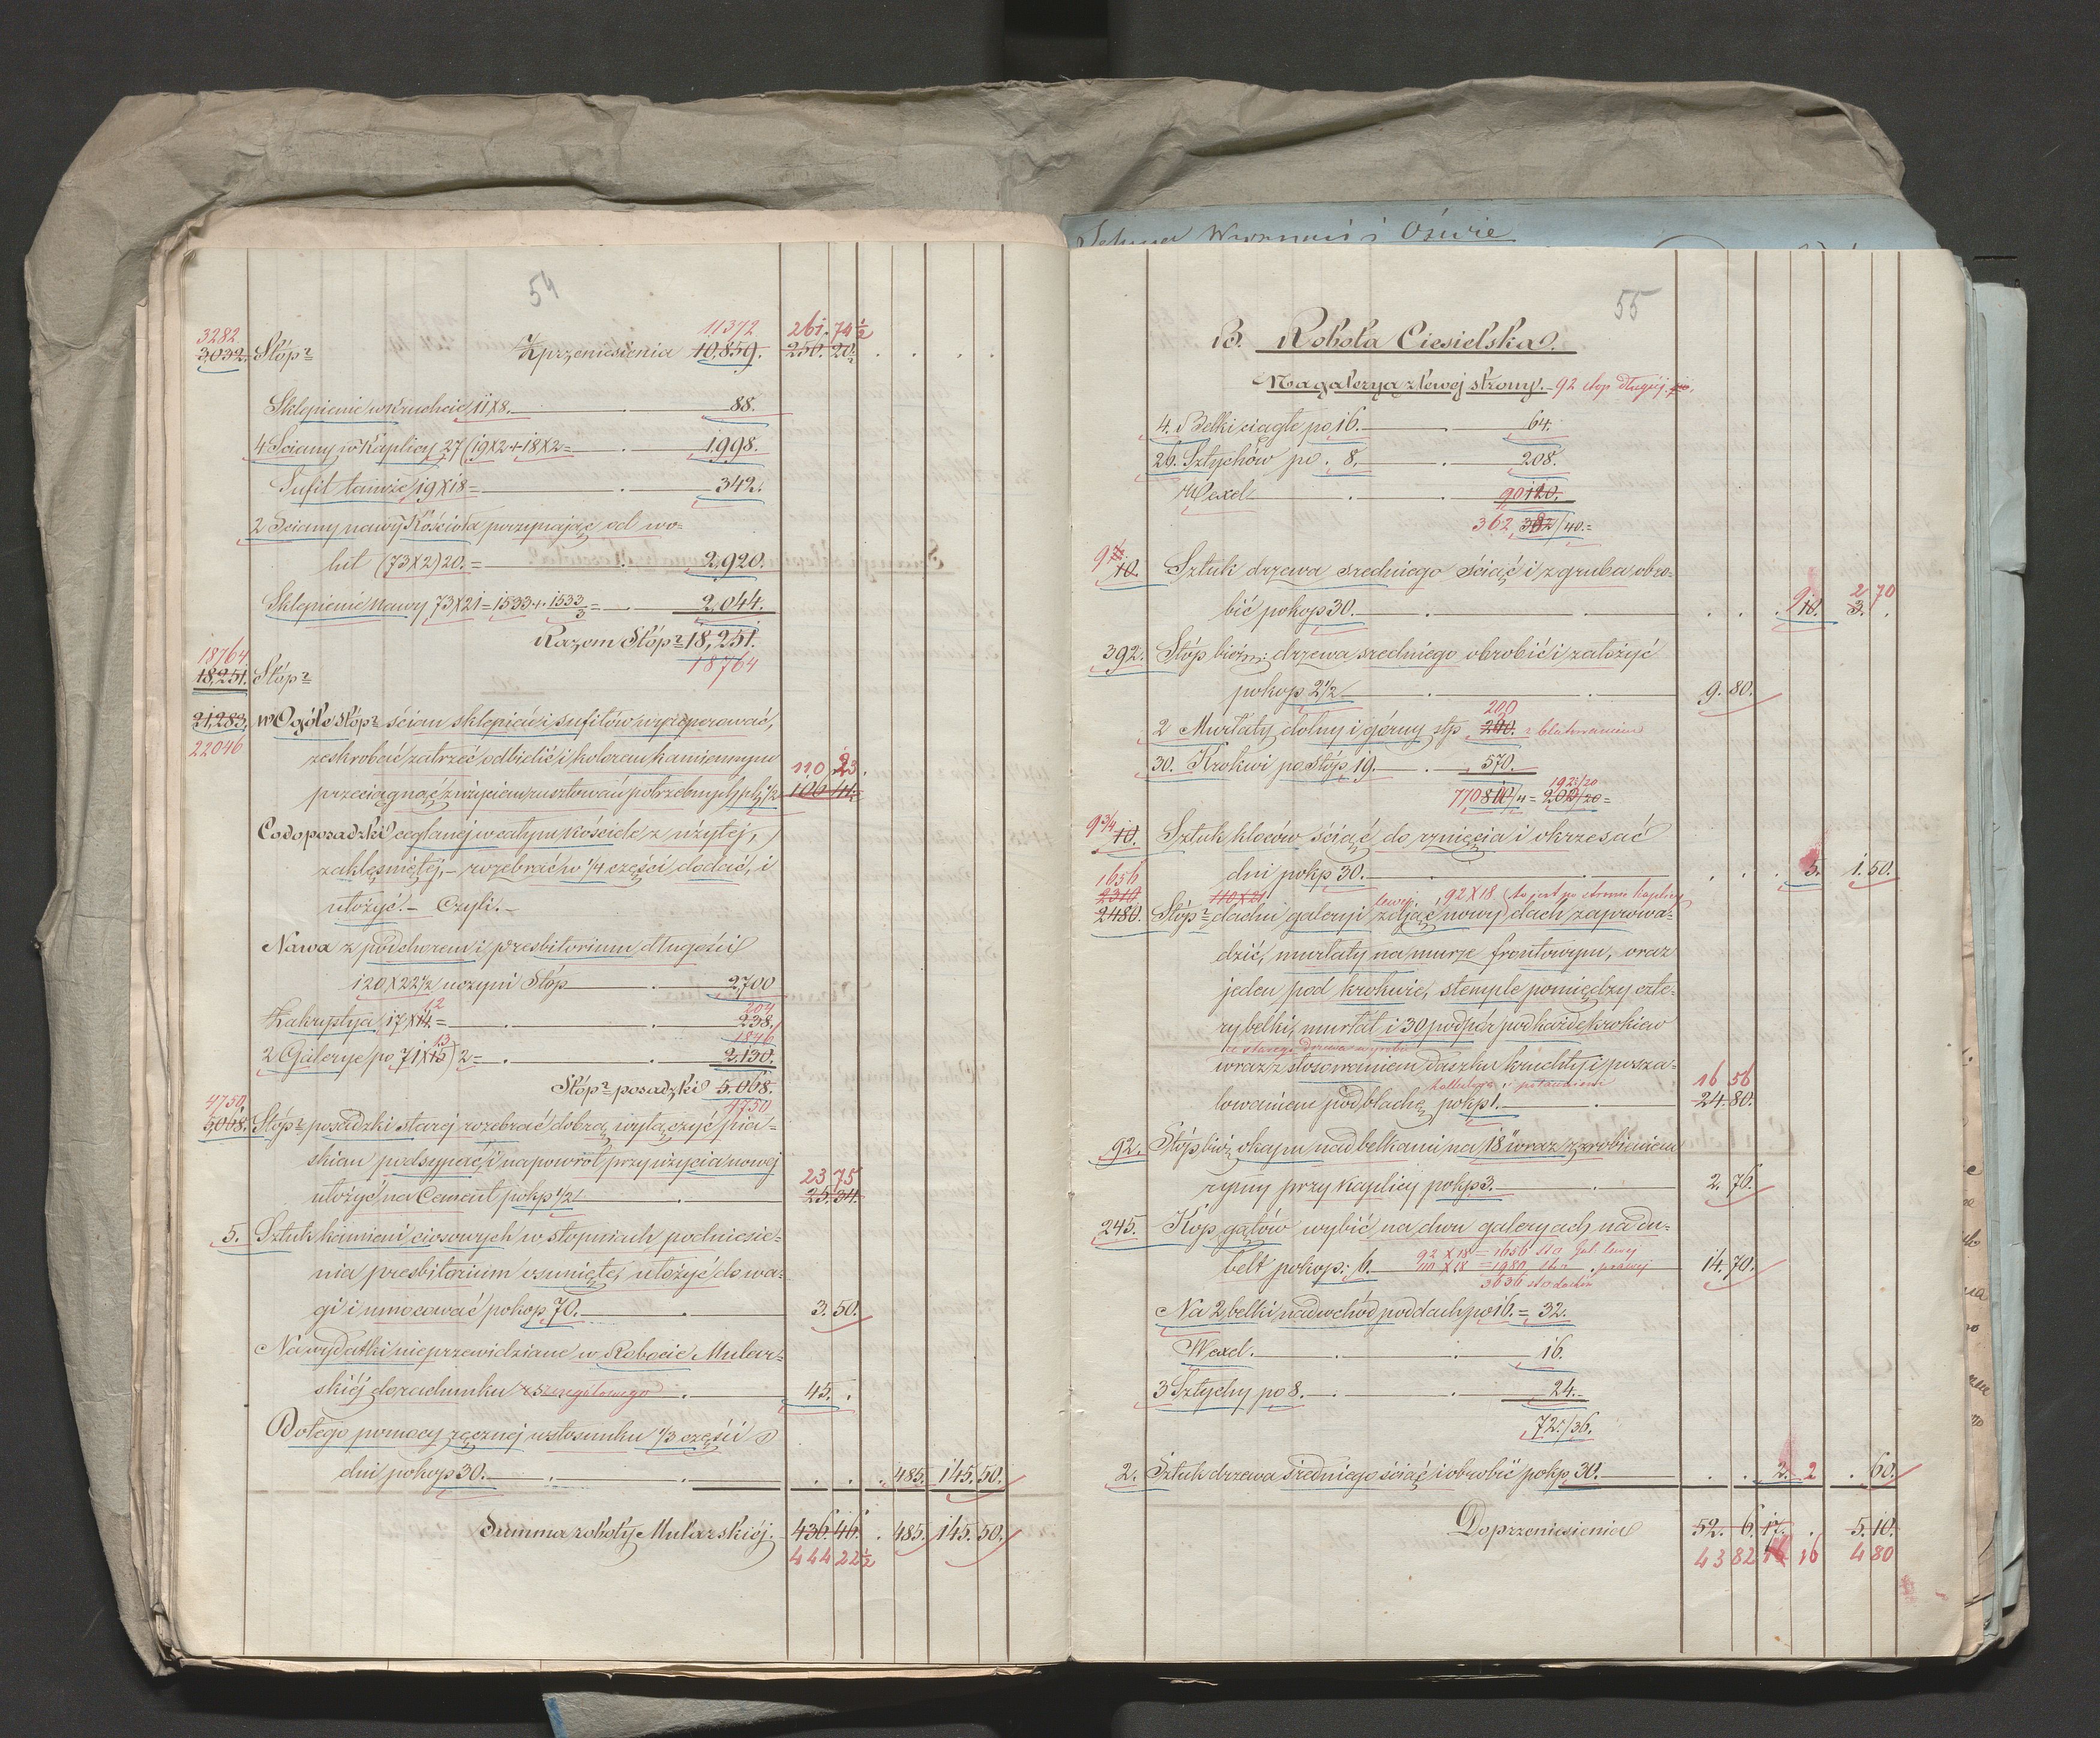 54
3282 11372 261. 74 1/2
3,032. Stóp² Z przeniesienia 10,859. 250. 20.
Sklepienie w Kruchcie 11X8. 88.
4 Sciany w Kaplicy 27 (19X2+18X2= 1,998.
Sufit tamże 19X18= 342.
2 Sciany nawy Kościoła poczynając od wo-
lut (73X2) 20.= 2,920.
Sklepienie Nawy 73X21=1533+1533/3= 2,044.
Razem Stóp² 18,251.
18764 18764
18,251. Stóp²
21,283. w Ogóle stóp² ścian sklepień i sufitów wyreperować,
22046 zeskrobać zatrzeć odbielić i kolorem kamiennym
110 23.
przeciągnąć z użyciem rusztowań potrzebnych pkp ½ 106
Co do posadzki ceglanej w całym kościele z użytej,
zaklęśniętej,- rozebrać w 1/4 części dodać, i
ułożyć.- Czyli.-
Nawa z podchorem i presbiterium długości
120X22½ uczyni Stóp 2,700
12 204
Zakrystja 17X14.= 238.
13 1846
2 Galerye po 71X15) 2= 2,130.
Stóp² posadzki 5,068.
4750 4750
5,068. Stóp² posadzki starej rozebrać dobrą wyłączyć pia-
skiem podsypać, i napowrót przy użycia nowej
23 75
ułożyć na Cement pokp ½ 25. 34.
5. Sztuk kamieni ciosowych w stopniach podniesie-
nia presbiterium usuniętej ułożyć do wa-
gi i umocować pokop 70. 3. 50.
Na wydatki nieprzewidziane w Robocie Mular-
skiéj do rachunku szczegółowego 45.
Do tego pomocy ręcznej w stosunku 1/3 części
dni pokop 30. 485. 145. 50.
Summa roboty Mularskiéj. 436. 46. 485. 145. 50.
444 22 1/2
55
B. Robota Ciesielska.
Na galerya z lewej strony.- 92 stop długiej
4. Belki ciągłe po 16. 64.
26. Sztychów po 8. 208.
Wexel 90 120.
362 392/40.=
9
10. Sztuk drzewa sredniego ściąć i z gruba obro-
2 70
bić pokop 30. 9 10. 3.
392. Stóp bieżn: drzewa sredniego obrobić i założyć
pokop 2½ 9. 80.
200
2 Murłaty dolny i górny stp 240. z blatowaniem
30. Krokwi po Stóp 19. 570.
192/20
770 810/4 = 202/20 =
9 3/4
10. Sztuk kloców ściąć do rznięcia i okrzesać
dni pokp 30. 5. 1. 50.
1656
2310. 110X21 lewej 92X18 (to jest po stronie Kaplicy
2480. Stóp² dachu galeryi zdjąć nowy dach zaprowa-
dzić, murłaty na murze frontowym, oraz
jeden pod krokwie, stemple pomiędzy czte-
ry belki, murłat i 30 podpór pod każde krokiew
ze starego drzewa wyrobić
wraz z stosowaniem daszku kruchty i posza-
16 56
lowaniem pod blachę pokp 1. 24. 80.
92. Stóp bież okapu nad belkami na 18" wraz z zrobieniem
rynny przy kaplicy pokp 3. 2. 76.
245. Kóp gątów wybić na dwu galeryach na du-
92 X 18 = 1656 sto Gal. lewej
belt pokop: 6. 110 X 18 = 1980 sto . prawej 14. 70.
3636 sto dachów
Na 2 belki nad wchód pod dach po 16.= 32.
Wexel. 16.
3 Sztychy po 8. 24.
72./36.
2. Sztuk drzewa średniego ściąć i obrobić pokp 30. 2. 2 60.
Do przeniesienia 52. 6. 17. 5. 10.
43 82 16 4 80